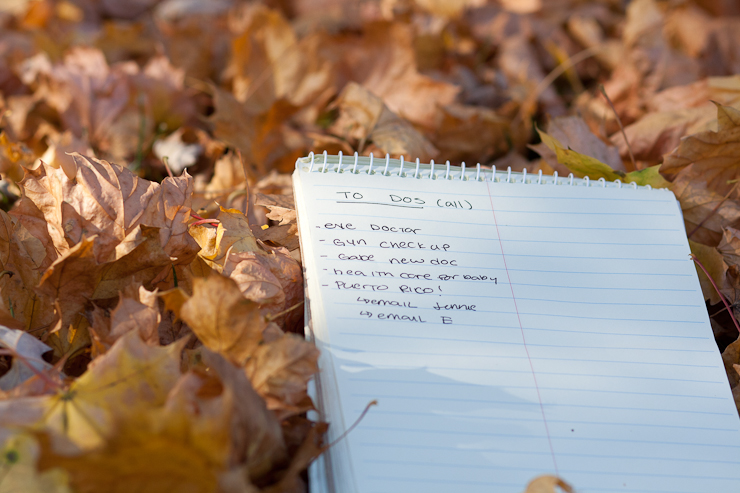 TO DOS (all)
- eye Doctor
- Gyn check up
- Gabe new doc
- health care for baby
- Puerto Rico!
↳ email Jennie
↳ email E